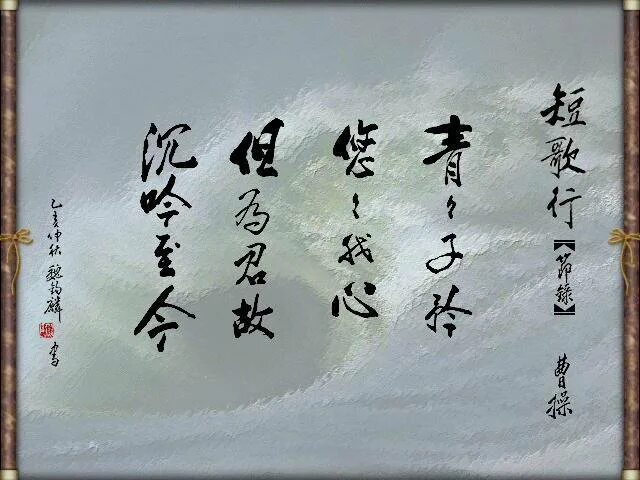 短歌行【節錄】 曹操
青々子衿
悠々我心
但為君故
沉吟至今
乙亥仲秋 魏鈞麟 书